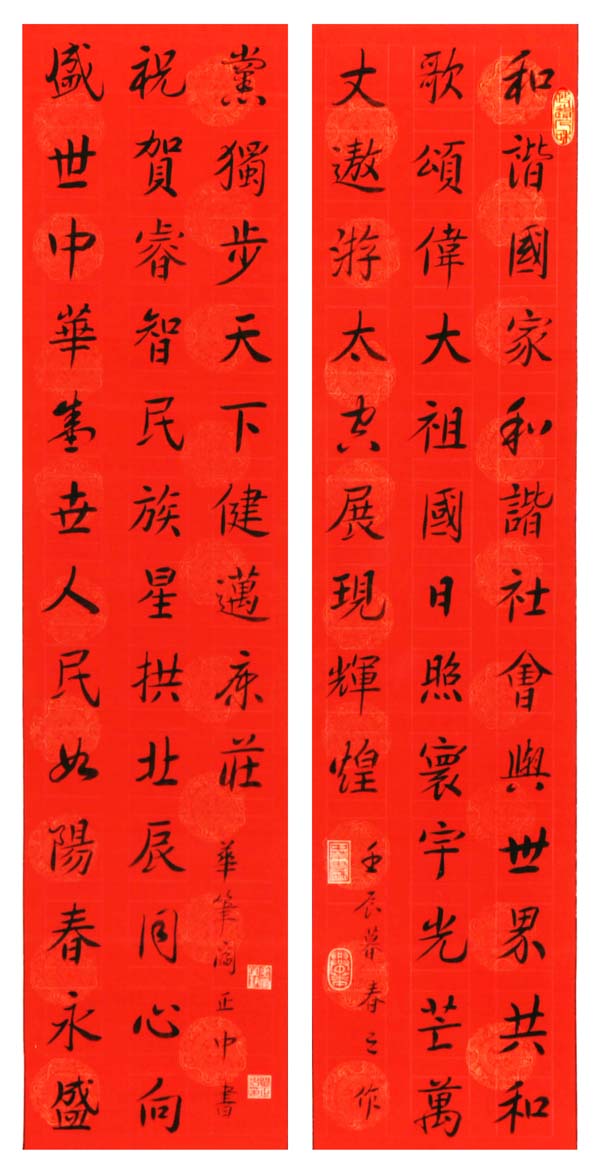 和諧國家和諧社會與世界共和
歌頌偉大祖國日照寰宇光芒萬
丈遨游太空展現輝煌
壬辰暮春之作
盛世中華盛世人民如陽春永盛
祝賀睿智民族星拱北辰同心向
黨獨步天下健邁康莊
華筆正中書